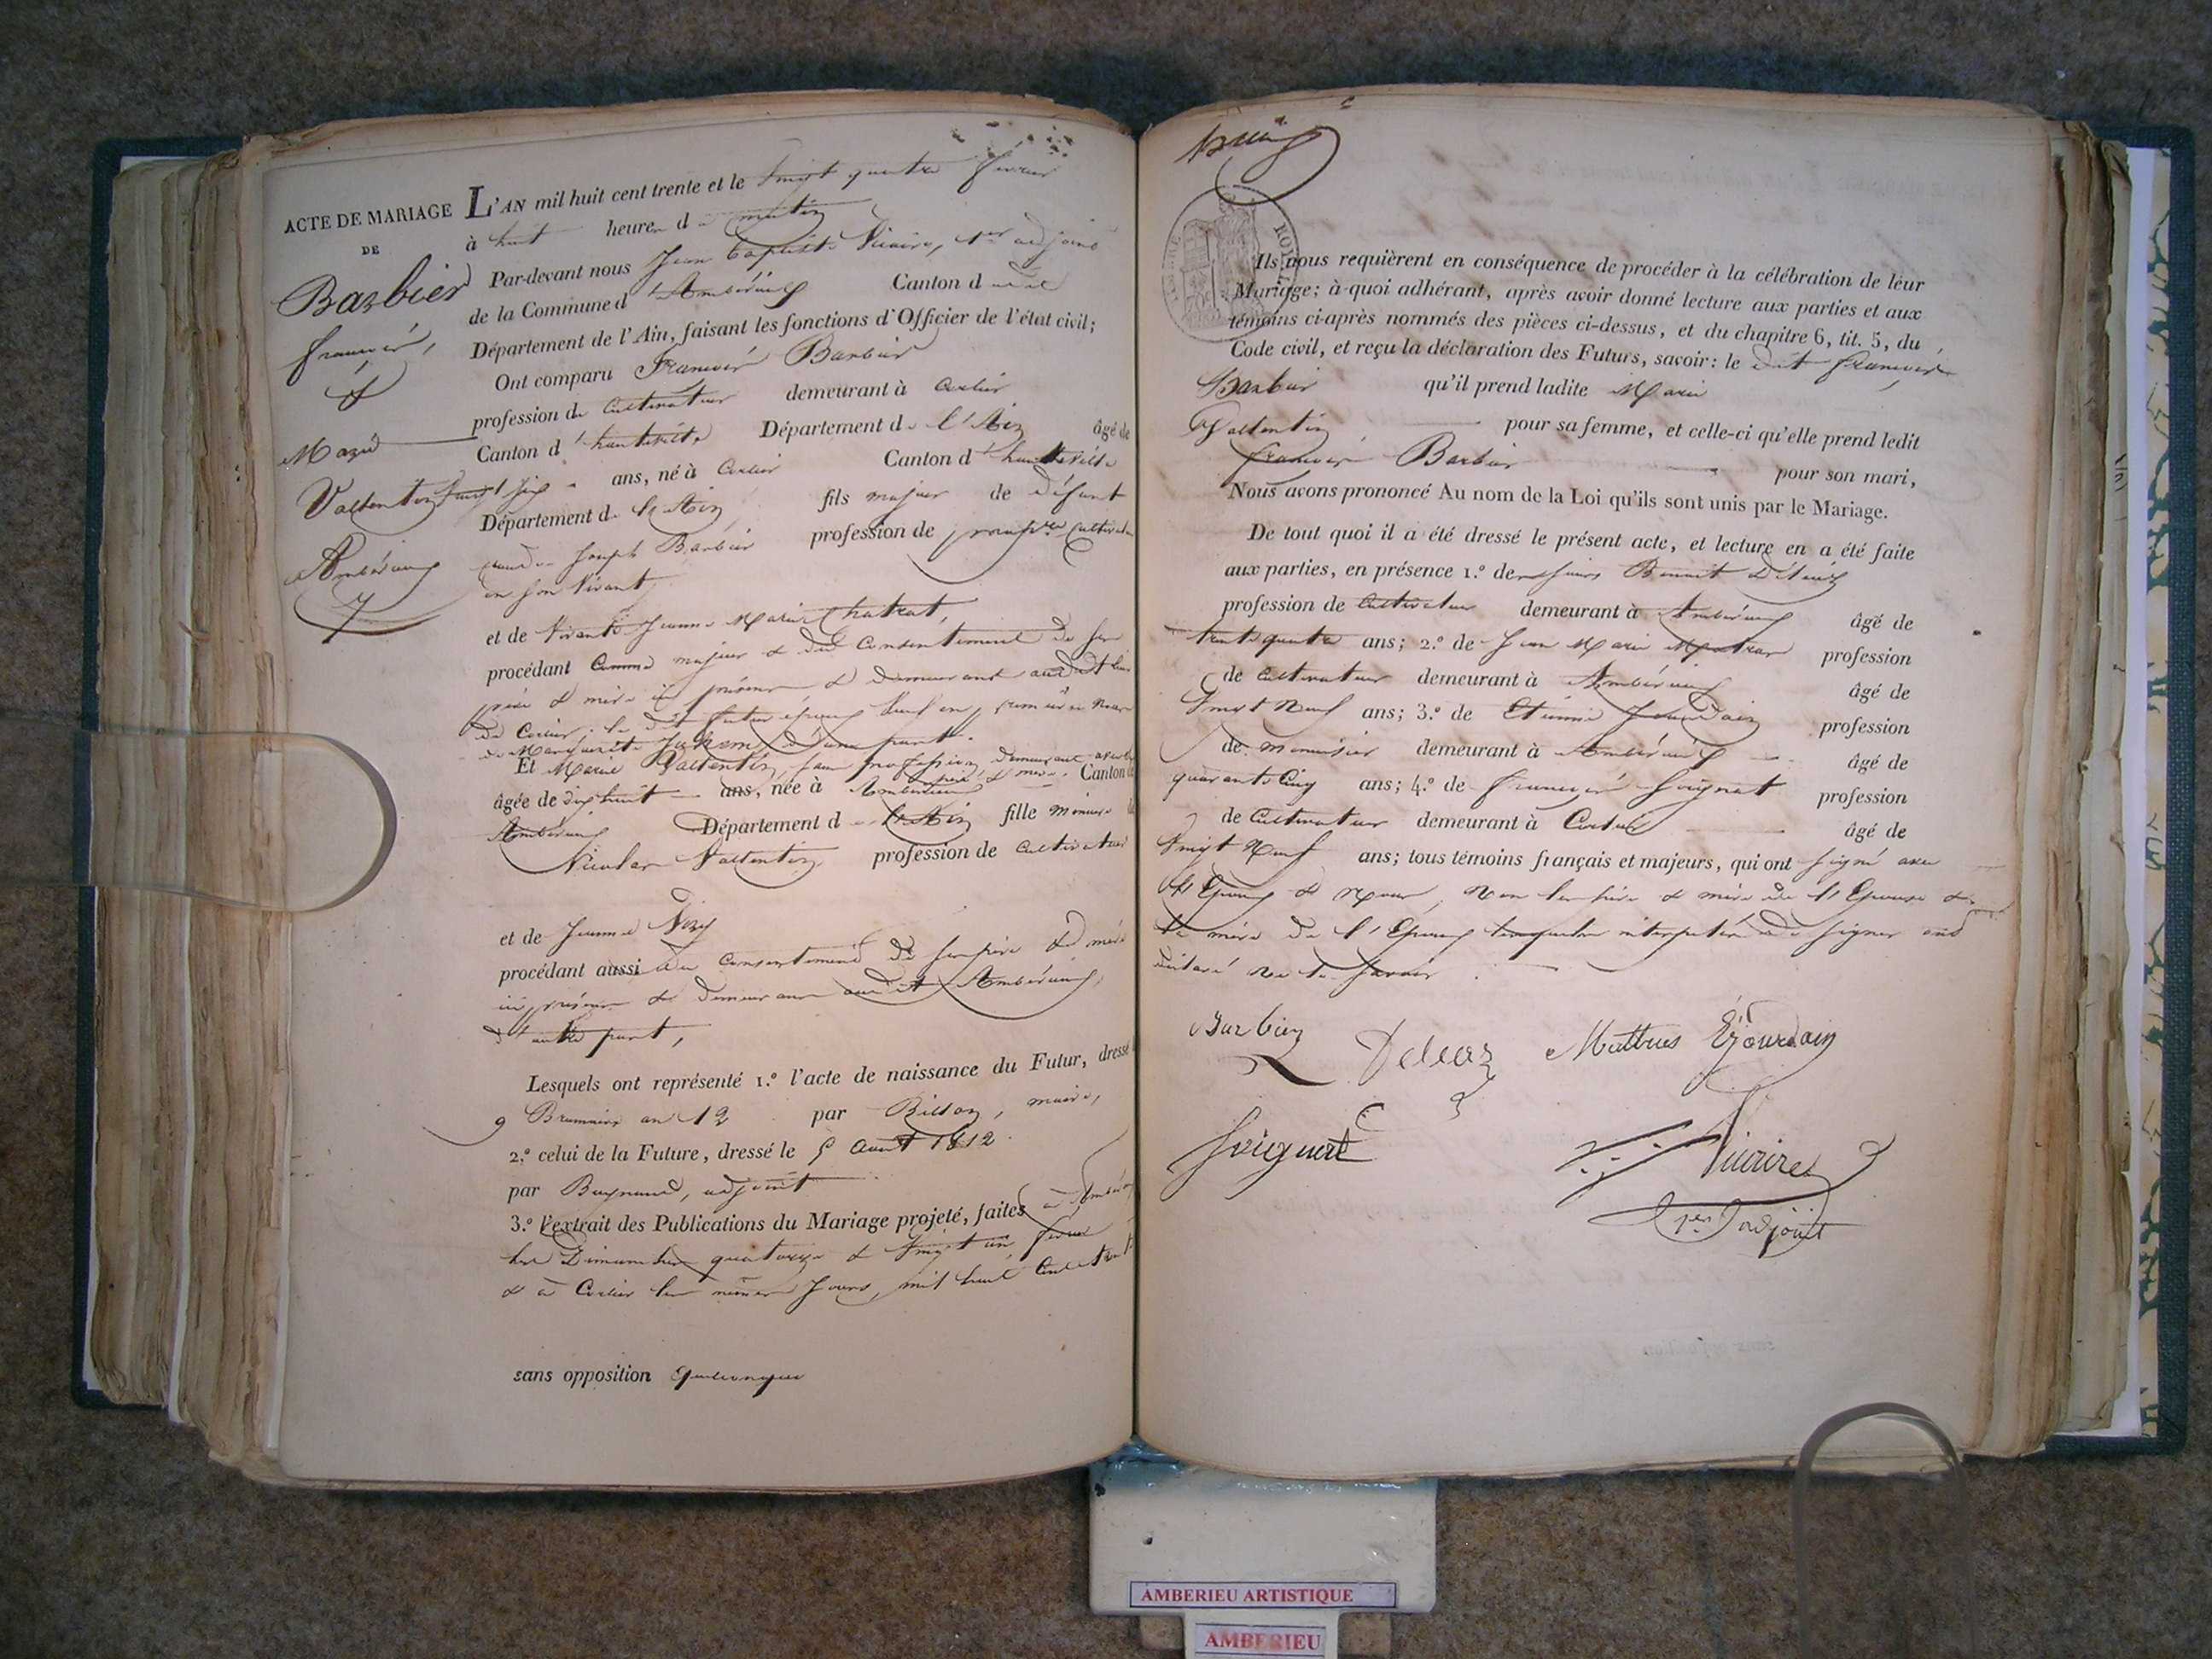 ACTE DE MARIAGE
DE
Barbier
françois,
&
Marie
Valentin
Ambérieux
7
L'AN mil huit cent trente et le vingt quatre février
à huit heures du matin
Par-devant nous Jean Baptiste Vicaire, 1er adjoint
de la Commune d'Ambérieux Canton du dit
Département de l'Ain, faisant les fonctions d'Officier de l'état civil;
Ont comparu François Barbier
profession de Cultivateur demeurant à Corlier
Canton d'hauteville Département de l'Ain âgé de
vingt six ans, né à Corlier Canton d'hauteville
Département de l'Ain fils majeur de défunt
Joseph Barbier profession de cultivateur
en son vivant
et de vivante Jeanne Marie Chatrat,
procédant comme majeur & du consentement de sa
mère ici présente & demeurant audit lieu
de Corlier. le dit futur époux veuf en premières noces
de Marguerite d'une part.
Et Marie Valentin, sans profession, demeurant avec ses
père & mère. Canton de
âgée de dix huit ans, née à Ambérieux
Ambérieux Département de l'Ain fille mineure de
Nicolas Valentin profession de cultivateur
et de Jeanne
procédant aussi du consentement de ses père & mère
ici présents & demeurant audit Ambérieux,
d'autre part,
Lesquels ont représenté 1.º l'acte de naissance du Futur, dressé le
9 Brumaire an 12 par Billon, maire,
2.º celui de la Future, dressé le 5 août 1812
par adjoint
3.º l'extrait des Publications du Mariage projeté, faites à
les Dimanches quatorze & vingt un février
& à Corlier les mêmes jours, mil huit cent trente
sans opposition quelconque
Ils nous requièrent en conséquence de procéder à la célébration de leur
Mariage; à quoi adhérant, après avoir donné lecture aux parties et aux
témoins ci-après nommés des pièces ci-dessus, et du chapitre 6, tit. 5, du
Code civil, et reçu la déclaration des Futurs, savoir: le dit françois
Barbier qu'il prend ladite Marie
Valentin pour sa femme, et celle-ci qu'elle prend ledit
françois Barbier pour son mari,
Nous avons prononcé Au nom de la Loi qu'ils sont unis par le Mariage.
De tout quoi il a été dressé le présent acte, et lecture en a été faite
aux parties, en présence 1.º de sieurs Benoit
profession de cultivateur demeurant à Ambérieux âgé de
trente quatre ans; 2.º de Jean Marie profession
de cultivateur demeurant à Ambérieux âgé de
vingt neuf ans; 3.º de Etienne Jourdain profession
de menuisier demeurant à Ambérieux âgé de
quarante cinq ans; 4.º de françois Soignat profession
de cultivateur demeurant à Corlier âgé de
vingt neuf ans; tous témoins français et majeurs, qui ont signé avec
l'Epoux & nous, non les père & mère de l'Epouse &
la mère de l'Epoux lesquels interpellés de signer ont
déclaré ne le savoir.
Barbier
Jourdain
Vicaire
1er adjoint
AMBERIEU ARTISTIQUE
AMBERIEU